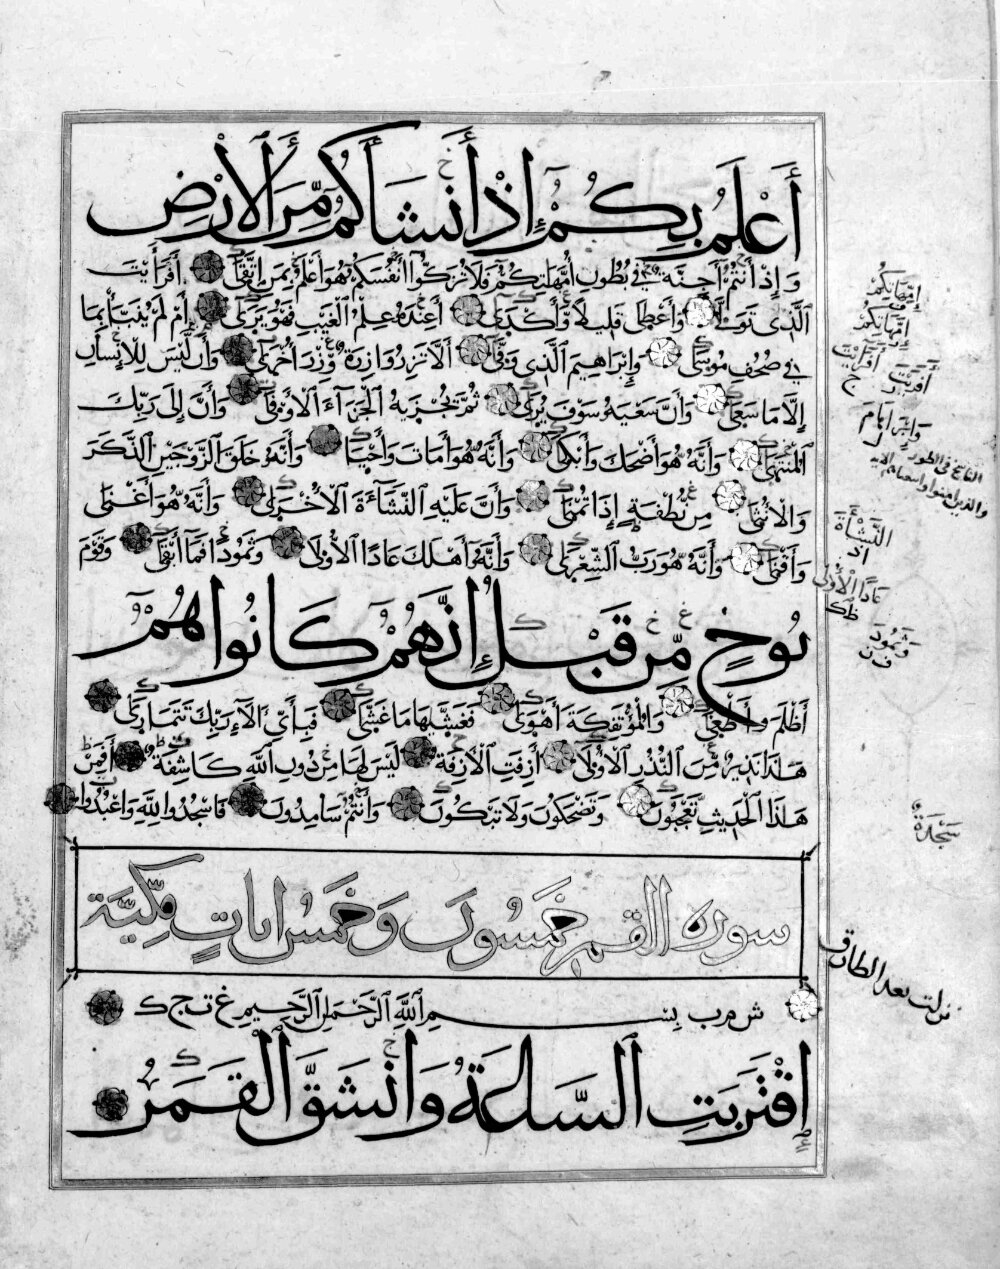 أَعْلَمُ بِكُمْ إِذْ أَنشَأَكُم مِّنَ ٱلْأَرْضِ
وَإِذْ أَنتُمْ أَجِنَّةٌ فِي بُطُونِ أُمَّهَاتِكُمْ فَلَا تُزَكُّوا أَنفُسَكُمْ هُوَ أَعْلَمُ بِمَنِ اتَّقَىٰ أَفَرَأَيْتَ
الَّذِي تَوَلَّىٰ وَأَعْطَىٰ قَلِيلًا وَأَكْدَىٰ أَعِندَهُ عِلْمُ الْغَيْبِ فَهُوَ يَرَىٰ أَمْ لَمْ يُنَبَّأْ بِمَا
فِي صُحُفِ مُوسَىٰ وَإِبْرَاهِيمَ الَّذِي وَفَّىٰ أَلَّا تَزِرُ وَازِرَةٌ وِزْرَ أُخْرَىٰ وَأَن لَّيْسَ لِلْإِنسَانِ
إِلَّا مَا سَعَىٰ وَأَنَّ سَعْيَهُ سَوْفَ يُرَىٰ ثُمَّ يُجْزَىٰهُ الْجَزَآءَ الْأَوْفَىٰ وَأَنَّ إِلَىٰ رَبِّكَ
الْمُنتَهَىٰ وَأَنَّهُ هُوَ أَضْحَكَ وَأَبْكَىٰ وَأَنَّهُ هُوَ أَمَاتَ وَأَحْيَا وَأَنَّهُ خَلَقَ الزَّوْجَيْنِ الذَّكَرَ
وَالْأُنثَىٰ مِن نُّطْفَةٍ إِذَا تُمْنَىٰ وَأَنَّ عَلَيْهِ النَّشْأَةَ الْأُخْرَىٰ وَأَنَّهُ هُوَ أَغْنَىٰ
وَأَقْنَىٰ وَأَنَّهُ هُوَ رَبُّ الشِّعْرَىٰ وَأَنَّهُ أَهْلَكَ عَادًا الْأُولَىٰ وَثَمُودَا فَمَا أَبْقَىٰ وَقَوْمَ
نُوحٍ مِّن قَبْلُ إِنَّهُمْ كَانُوا هُمْ
أَظْلَمَ وَأَطْغَىٰ وَالْمُؤْتَفِكَةَ أَهْوَىٰ فَغَشَّىٰهَا مَا غَشَّىٰ فَبِأَيِّ آلَآءِ رَبِّكَ تَتَمَارَىٰ
هَٰذَا نَذِيرٌ مِّنَ النُّذُرِ الْأُولَىٰ أَزِفَتِ الْآزِفَةُ لَيْسَ لَهَا مِن دُونِ اللَّهِ كَاشِفَةٌ أَفَمِنْ
هَٰذَا الْحَدِيثِ تَعْجَبُونَ وَتَضْحَكُونَ وَلَا تَبْكُونَ وَأَنتُمْ سَامِدُونَ فَاسْجُدُوا لِلَّهِ وَاعْبُدُوا
سورة القمر خمسون وخمس ايات مكية
بِسْمِ اللَّهِ الرَّحْمَٰنِ الرَّحِيمِ
اقْتَرَبَتِ السَّاعَةُ وَانشَقَّ الْقَمَرُ
امهاتكم
امهاتكم
أفريت أفرايت
وابراهام
النشأة
عادا الأولى
وثمود
سجدة
نزلت بعد الطارق